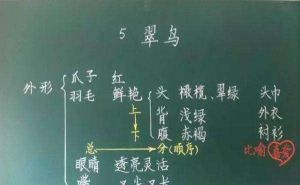 5 翠鸟
爪子 红
外形 羽毛 鲜艳 头 橄榄,翠绿 头巾
上 背 浅绿 外衣
下 腹 赤褐 衬衫
总 分(顺序) 比喻 喜爱
眼睛 透亮灵活
嘴 又尖又长